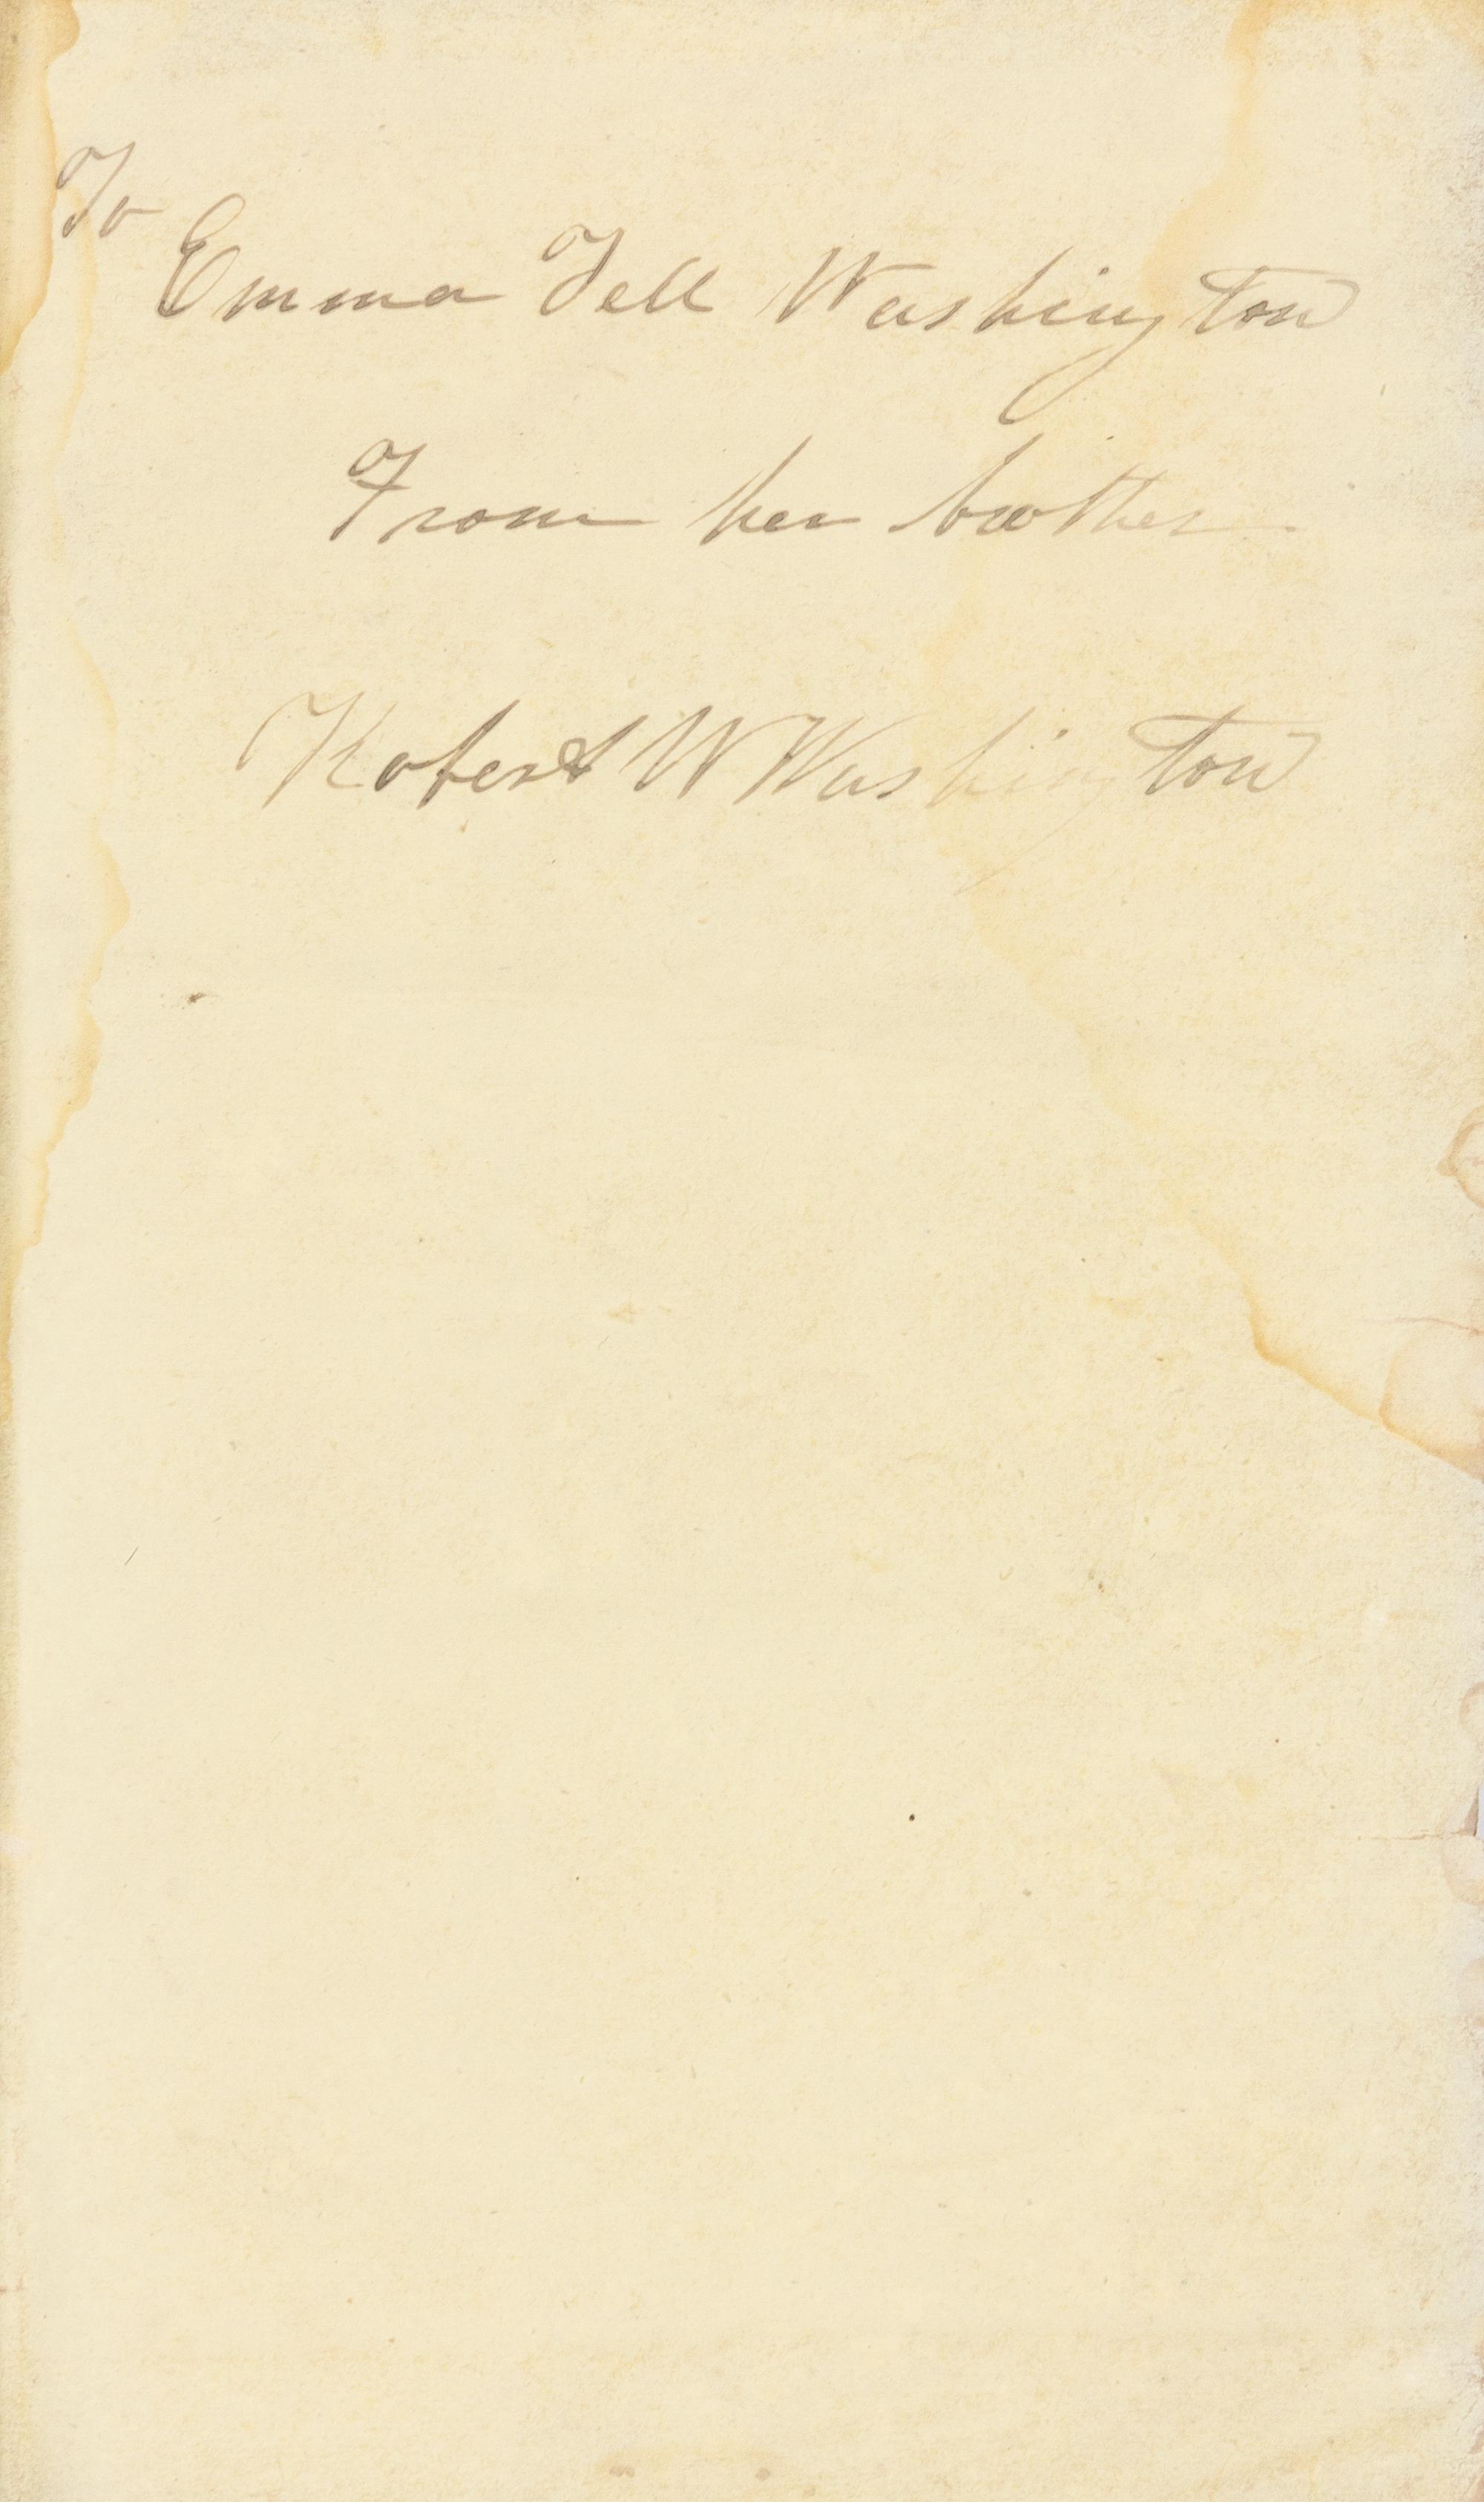 To
Emma Tell Washington
From her brother
Robert W Washington